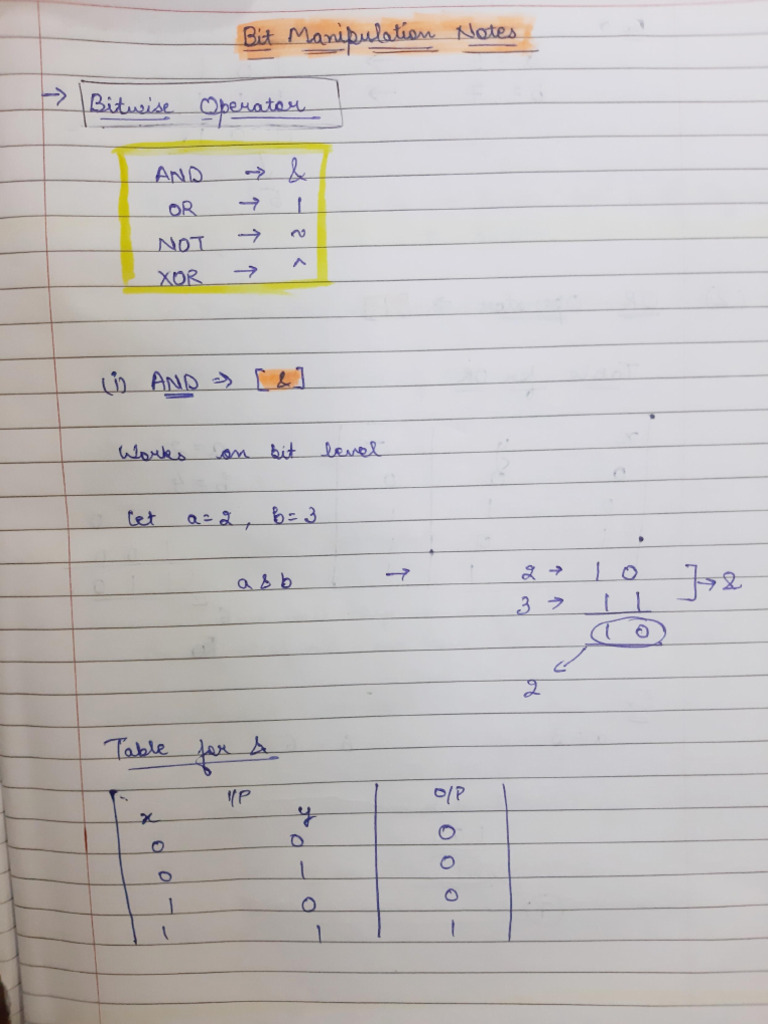 Bit Manipulation Notes
→ Bitwise Operator
AND → &
OR → |
NOT → ~
XOR → ^
(i) AND ⇒ [&]
Works on bit level
Let a=2, b=3
a & b → 2 → 1 0
3 → 1 1 ] → &
1 0
2
Table for &
I/P O/P
x y
0 0 0
0 1 0
1 0 0
1 1 1